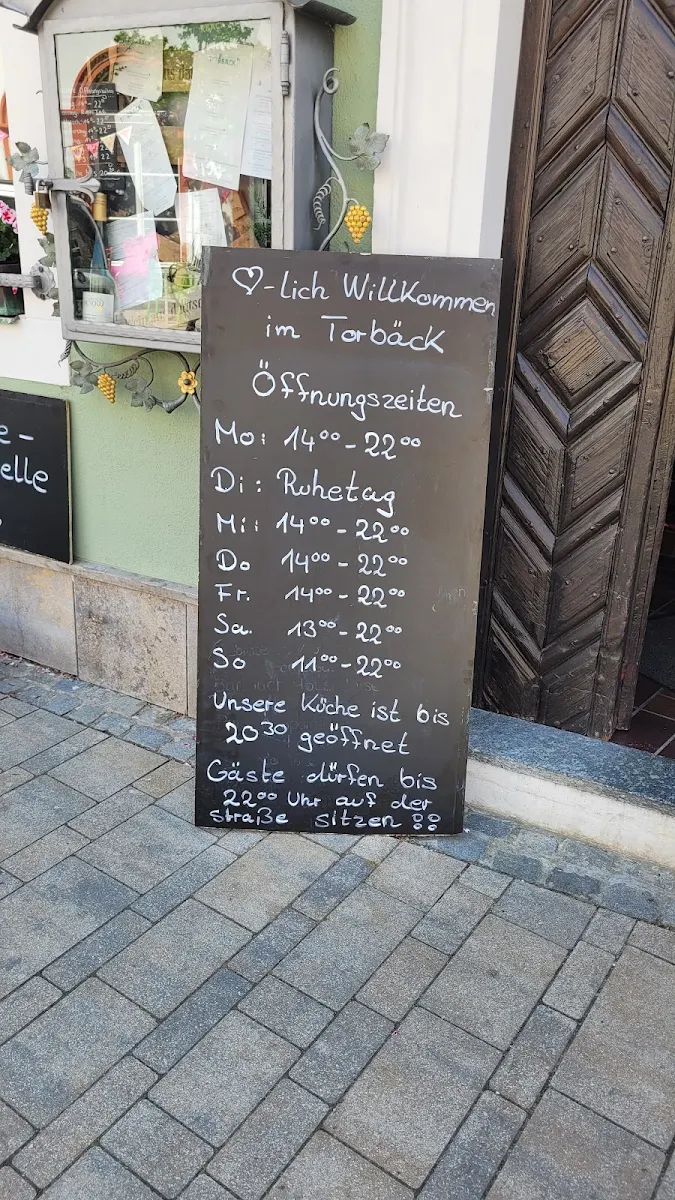 ♡-lich Willkommen
im Torbäck
Öffnungszeiten
Mo: 14⁰⁰-22⁰⁰
Di: Ruhetag
Mi: 14⁰⁰-22⁰⁰
Do 14⁰⁰-22⁰⁰
Fr. 14⁰⁰-22⁰⁰
Sa. 13⁰⁰-22⁰⁰
So 11⁰⁰-22⁰⁰
Unsere Küche ist bis
20³⁰ geöffnet
Gäste dürfen bis
22⁰⁰ Uhr auf der
straße sitzen !!
e-
elle